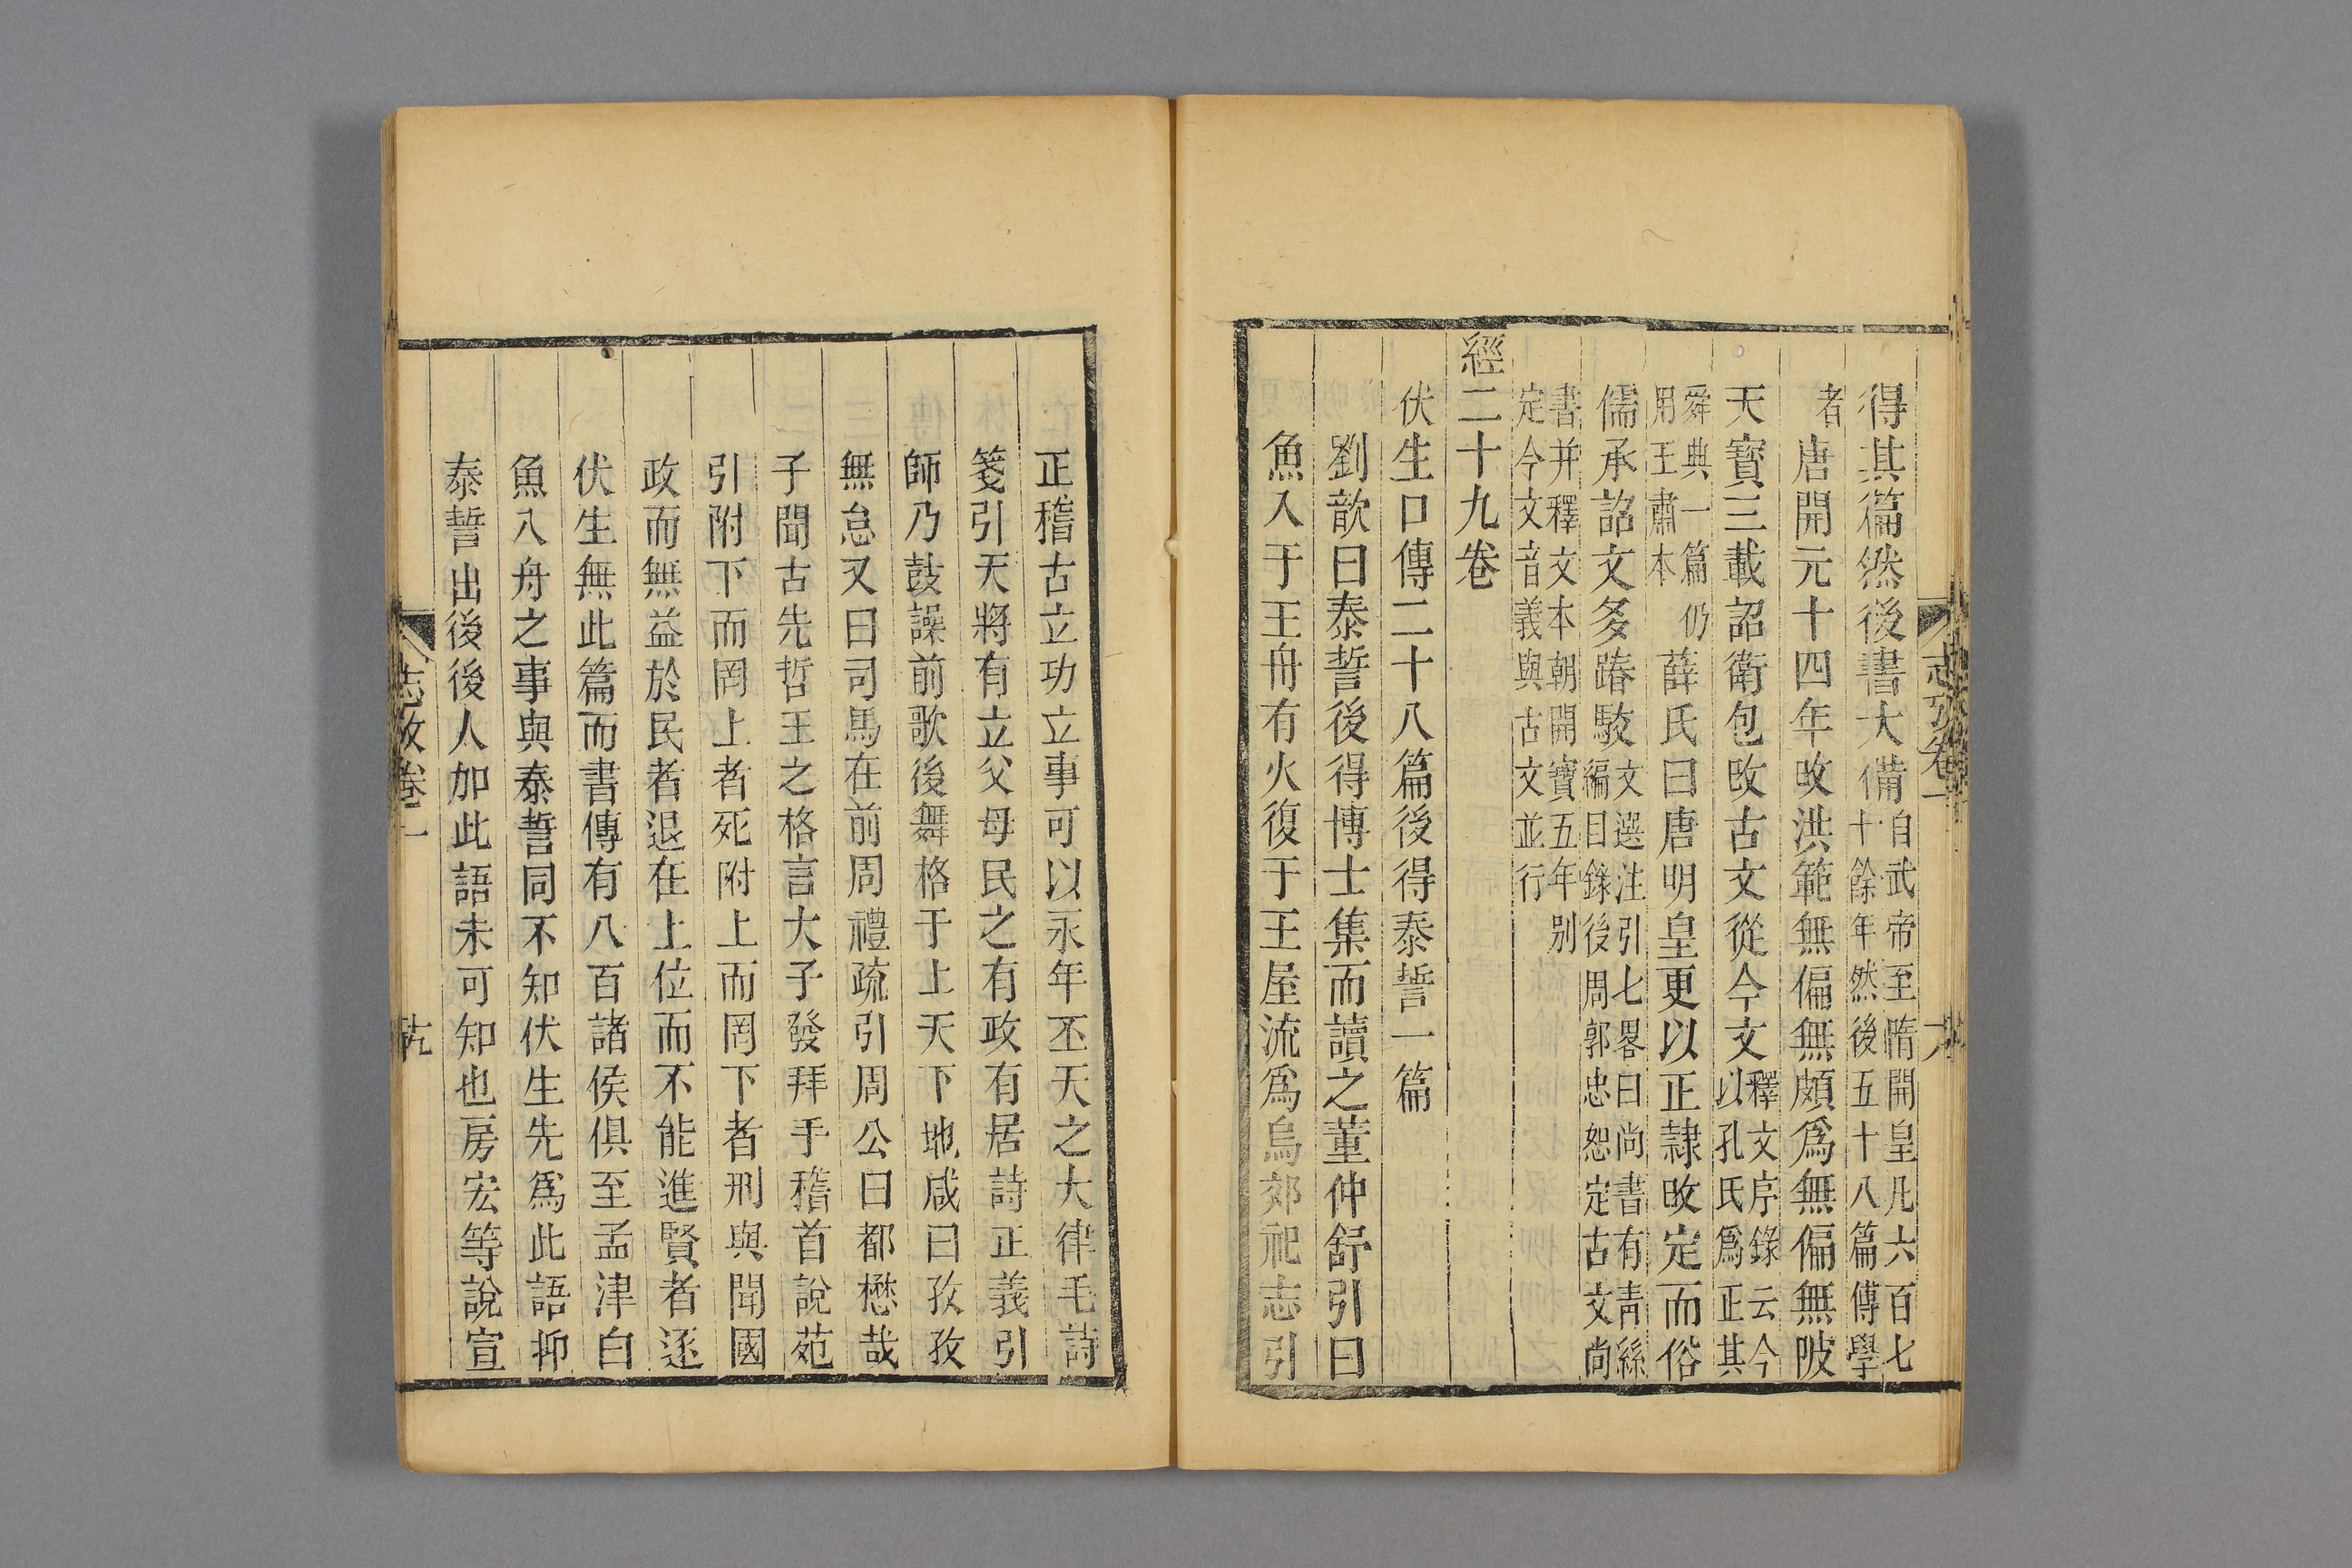 得其篇然後書大備自武帝至隋開皇凡六百七十餘年然後五十八篇傳學
者唐開元十四年改洪範無偏無頗爲無偏無陂
天寶三載詔衛包改古文從今文釋文序錄云今以孔氏爲正其
舜典一篇仍用王肅本薛氏曰唐明皇更以正隷改定而俗
儒承詔文多踳駮文選注引七畧曰尚書有靑絲編目錄後周郭忠恕定古文尚
書并釋文本朝開寶五年别定今文音義與古文並行
經二十九卷
伏生口傳二十八篇後得泰誓一篇
劉歆曰泰誓後得博士集而讀之董仲舒引曰
魚入于王舟有火復于王屋流爲烏郊祀志引
正稽古立功立事可以永年丕天之大律毛詩
箋引天將有立父母民之有政有居詩正義引
師乃鼓譟前歌後舞格于上天下地咸曰孜孜
無怠又曰司馬在前周禮疏引周公曰都懋哉
子聞古先哲王之格言大子發拜手稽首說苑
引附下而罔上者死附上而罔下者刑與聞國
政而無益於民者退在上位而不能進賢者逐
伏生無此篇而書傳有八百諸侯俱至孟津白
魚入舟之事與泰誓同不知伏生先爲此語抑
泰誓出後後人加此語未可知也房宏等說宣
志攷卷一